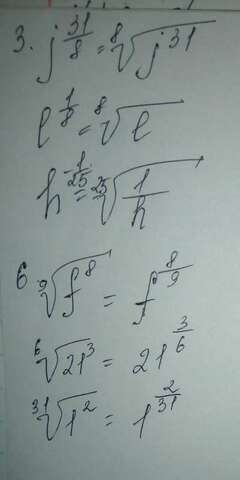 3. j^{31/8} = \sqrt[8]{j^{31}}
l^{1/8} = \sqrt[8]{l}
h^{-1/25} = \sqrt[25]{\frac{1}{h}}
6 \sqrt[9]{f^8} = f^{8/9}
\sqrt[6]{21^3} = 21^{3/6}
\sqrt[31]{1^2} = 1^{2/31}